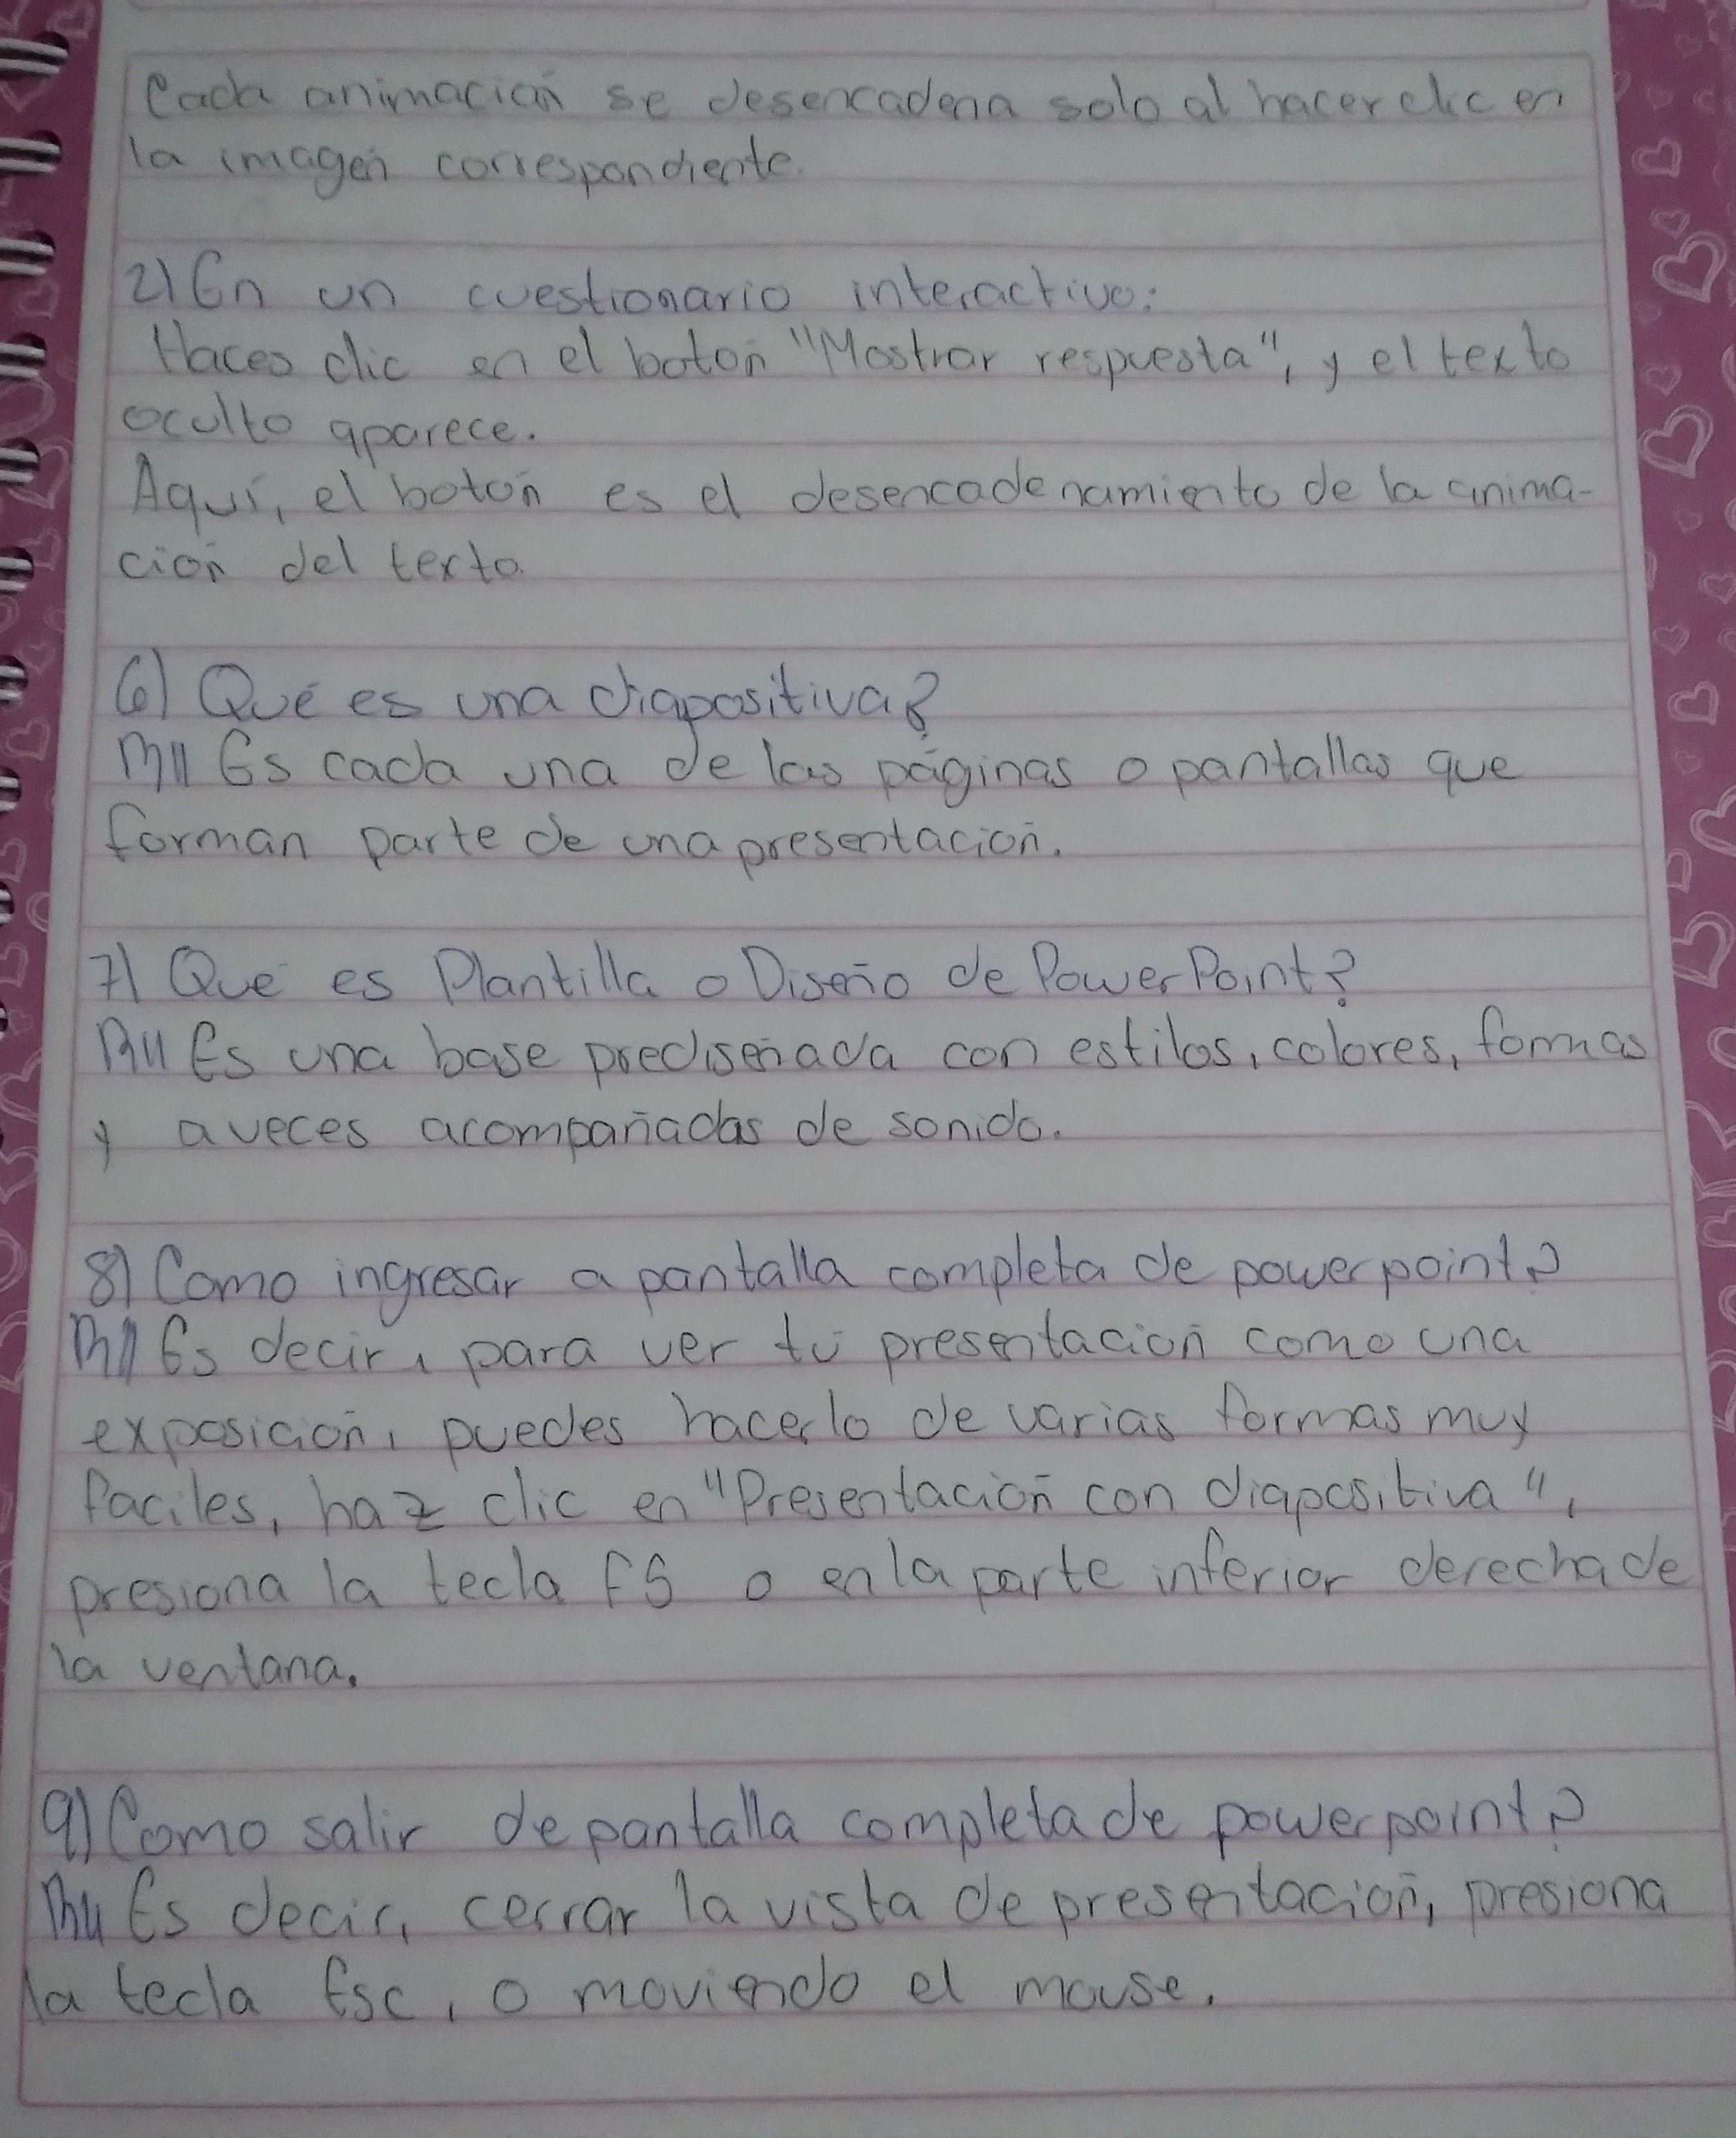 Cada animación se desencadena solo al hacer clic en
la imagen correspondiente.
2) En un cuestionario interactivo:
Haces clic en el botón "Mostrar respuesta", y el texto
oculto aparece.
Aquí, el botón es el desencadenamiento de la anima-
ción del texto.
6) Qué es una diapositiva?
R// Es cada una de las páginas o pantallas que
forman parte de una presentación.
7) Qué es Plantilla o Diseño de PowerPoint?
R// Es una base prediseñada con estilos, colores, formas
y aveces acompañadas de sonido.
8) Como ingresar a pantalla completa de powerpoint?
R// Es decir, para ver tú presentación como una
exposición, puedes hacerlo de varias formas muy
faciles, haz clic en "Presentación con diapositiva",
presiona la tecla F5 o en la parte inferior derecha de
la ventana.
9) Como salir de pantalla completa de powerpoint?
R// Es decir, cerrar la vista de presentación, presiona
la tecla Esc, o moviendo el mouse.